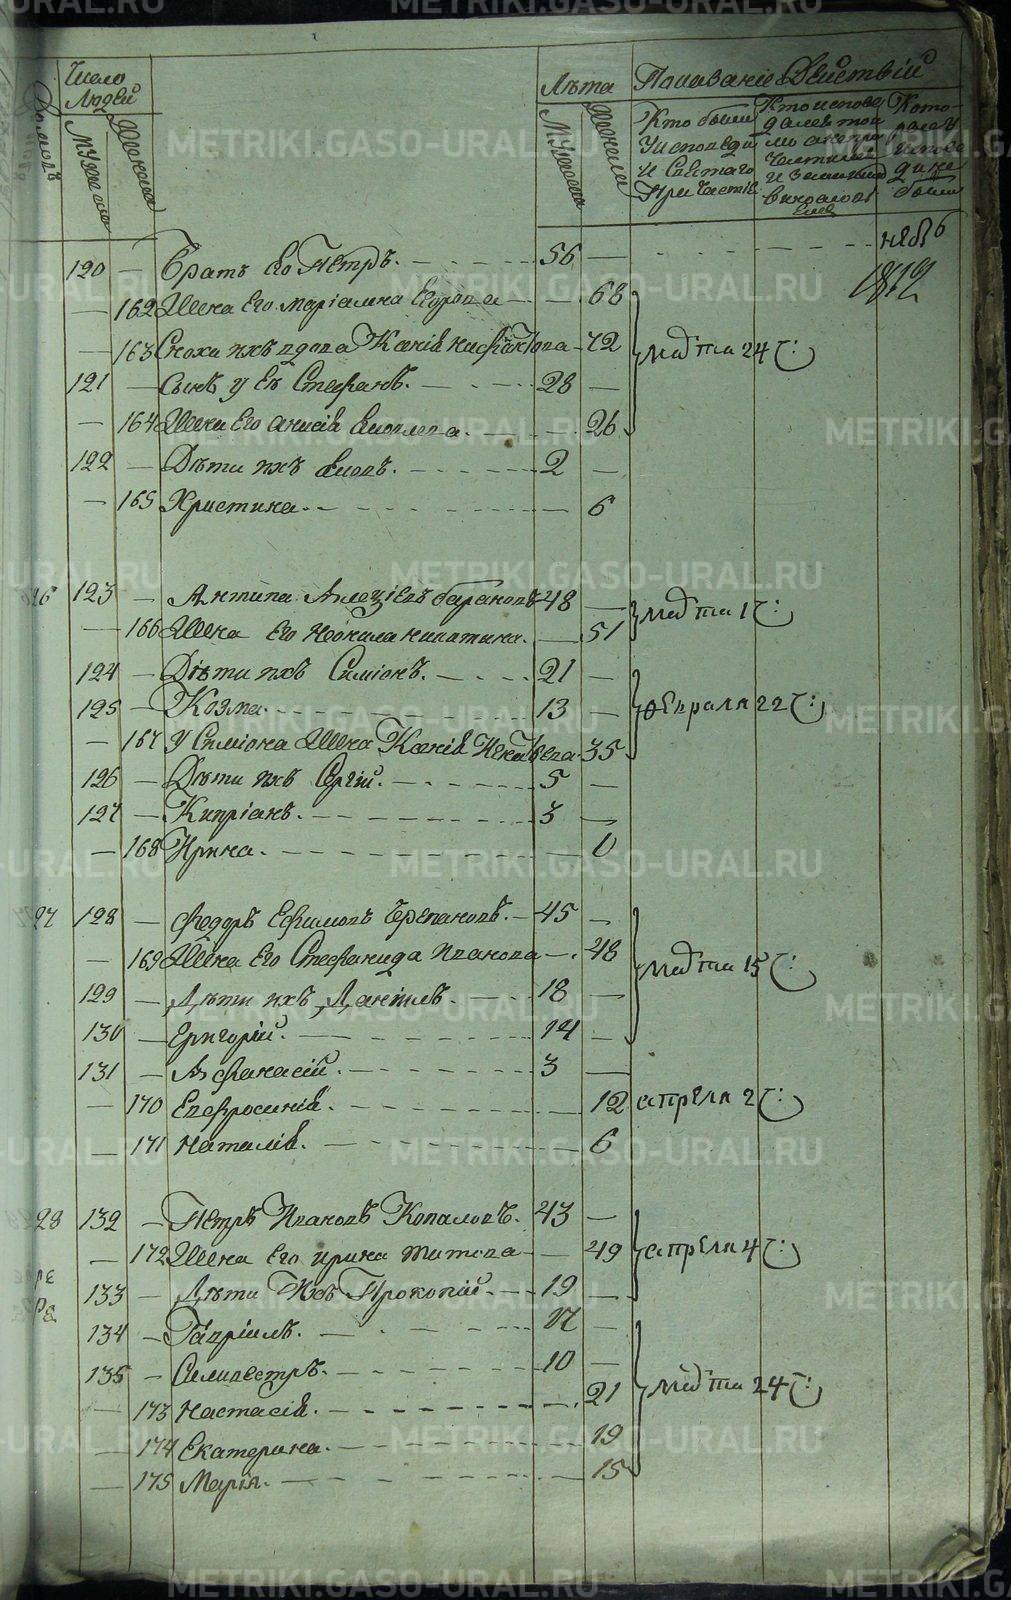 Число Людей
Домовъ
Мужска
Женска
Лѣта
Мужска
Женска
Показаніе Дѣйствій
Кто были у исповеди и Святаго Причастія
Кто исповедалея токмо а непричастился и за какимъ
Которые у исповеди не были
120 — Братъ Его Петръ. 56 —
1812
— 162 Жена Его маріамна Егорова — 68
— 163 Сноха ихъ вдова Ксенія — 72
марта 24 ч:
121 — Сынъ у Ея Стефанъ. 28 —
— 164 Жена Его анисія — 26
122 — Дѣти ихъ 2 —
— 165 Христина. — 6
126 123 — Антипа Баранов 48 —
— 166 Жена Его Неонила никитина. — 51
марта 1 ч:
124 — Дѣти ихъ Симіонъ. 21 —
125 — Козма. 13 —
февраля 22 ч:
— 167 У Симіона Жена Ксенія — 35
126 — Дѣти ихъ Сергій. 5 —
127 — Кипріанъ. 3 —
— 168 Ирина. —
127 128 — Федоръ Ефимовъ Черепановъ. 45 —
— 169 Жена Его Стефанида Иванова — 48
марта 15 ч:
129 — Дѣти ихъ Даніилъ. 18 —
130 — Григорій. 14 —
131 — Афанасій. 3 —
— 170 Евфросинія. — 12 апреля 2 ч:
— 171 Наталія. — 6
128 132 — Петръ Ивановъ Коваловъ. 43 —
— 172 Жена Его ирина титова — 49
апреля 4 ч:
133 — Дѣти Ихъ Прокопій. 19 —
134 — Гавріилъ. 17 —
135 — Силивестръ. 10 —
— 173 Настасія. — 21
марта 24 ч:
— 174 Екатерина. — 19
— 175 Марія. — 15
METRIKI.GASO-URAL.RU